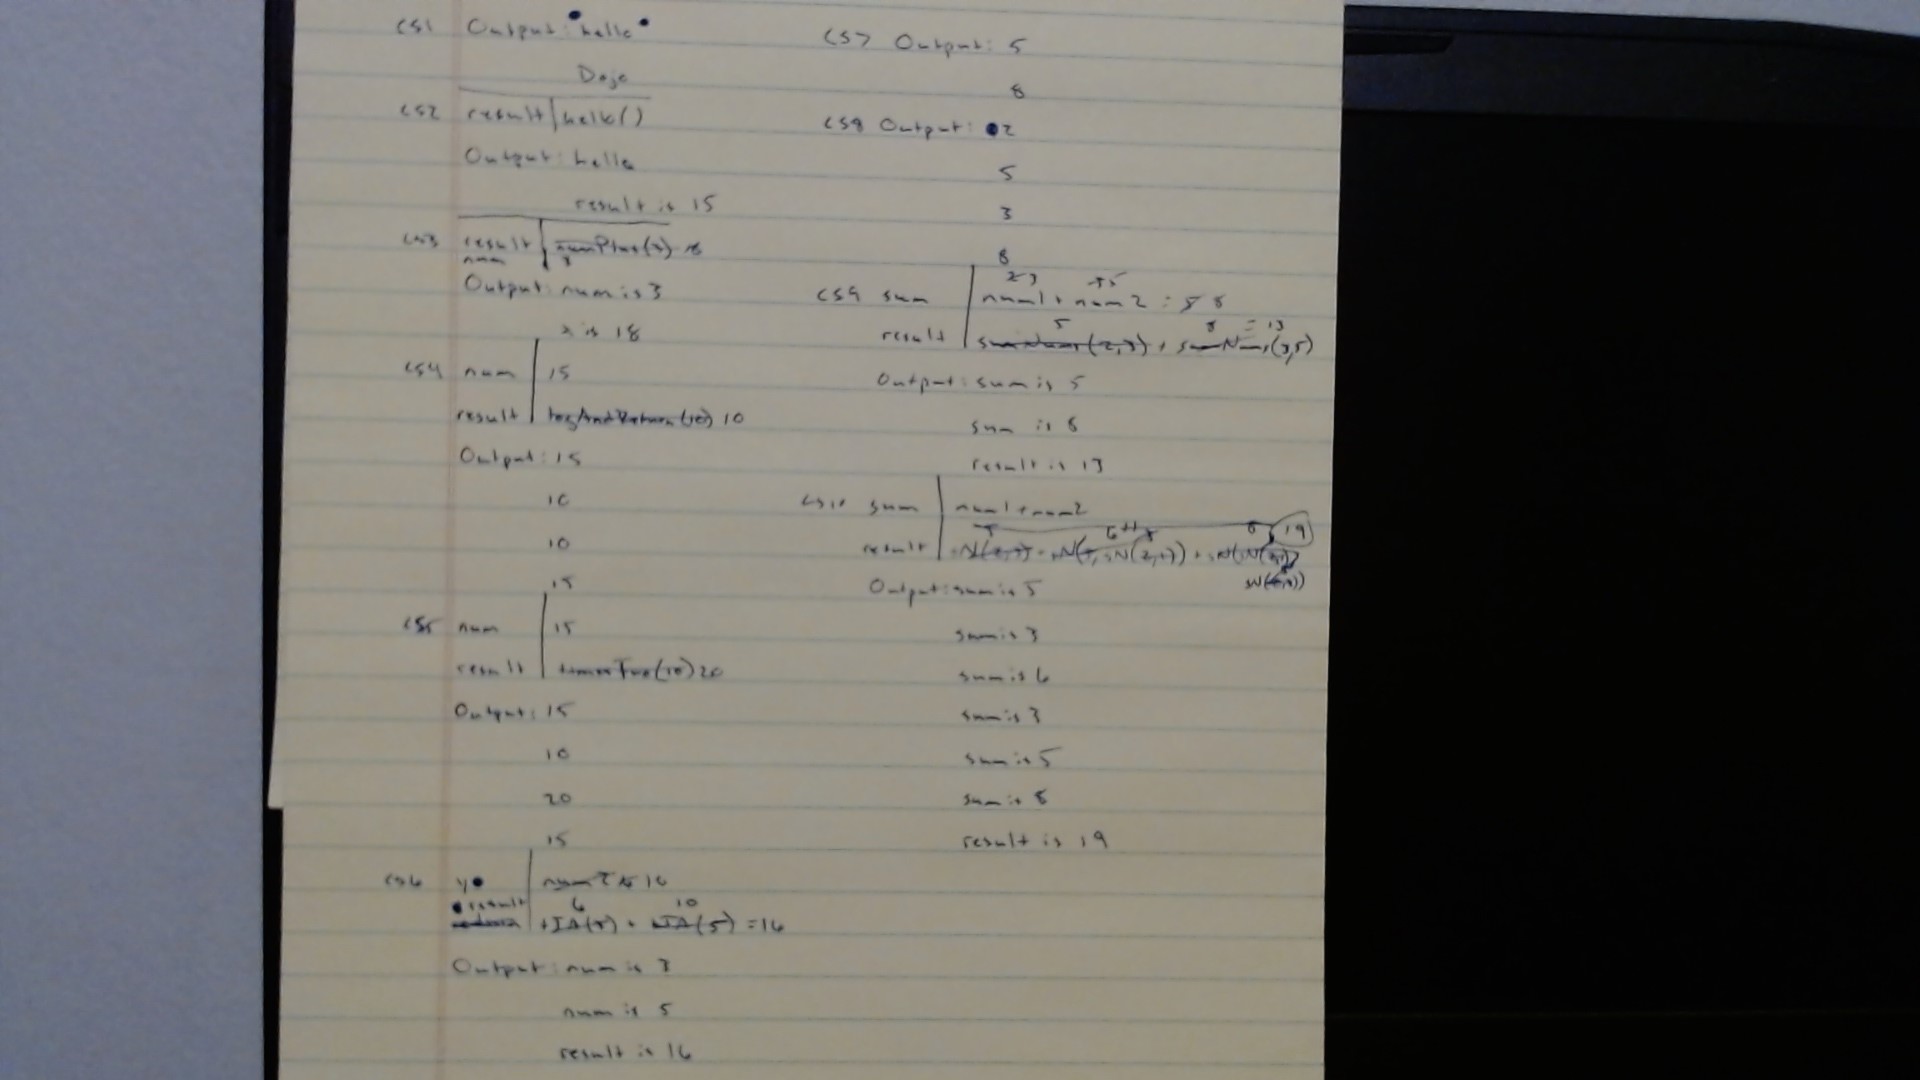 CS1 Output: hello
Dojo
CS2 result | hello()
Output: hello
result is 15
CS3 result | numPlus(3) 18
num 3
Output: num is 3
is 18
CS4 num | 15
result | logAndReturn(10) 10
Output: 15
10
10
15
CS5 num | 15
result | timesTwo(10) 20
Output: 15
10
20
15
CS6 y
result 6 10
+IA(3) + (5) = 16
Output: num is 3
num is 5
result is 16
CS7 Output: 5
8
CS8 Output: 2
5
3
8
23 35
CS9 sum | num1 + num2 : 5 8
5 8 = 13
result | sumNums(2,3) + sumNums(3,5)
Output: sum is 5
sum is 8
result is 13
CS10 sum | num1 + num2
19
result
Output: sum is 5
sum is 3
sum is 6
sum is 3
sum is 5
sum is 8
result is 19